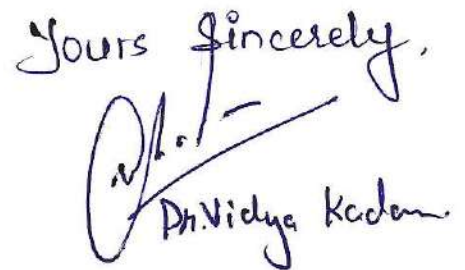 Yours Sincerely,
Dr. Vidya Kadam